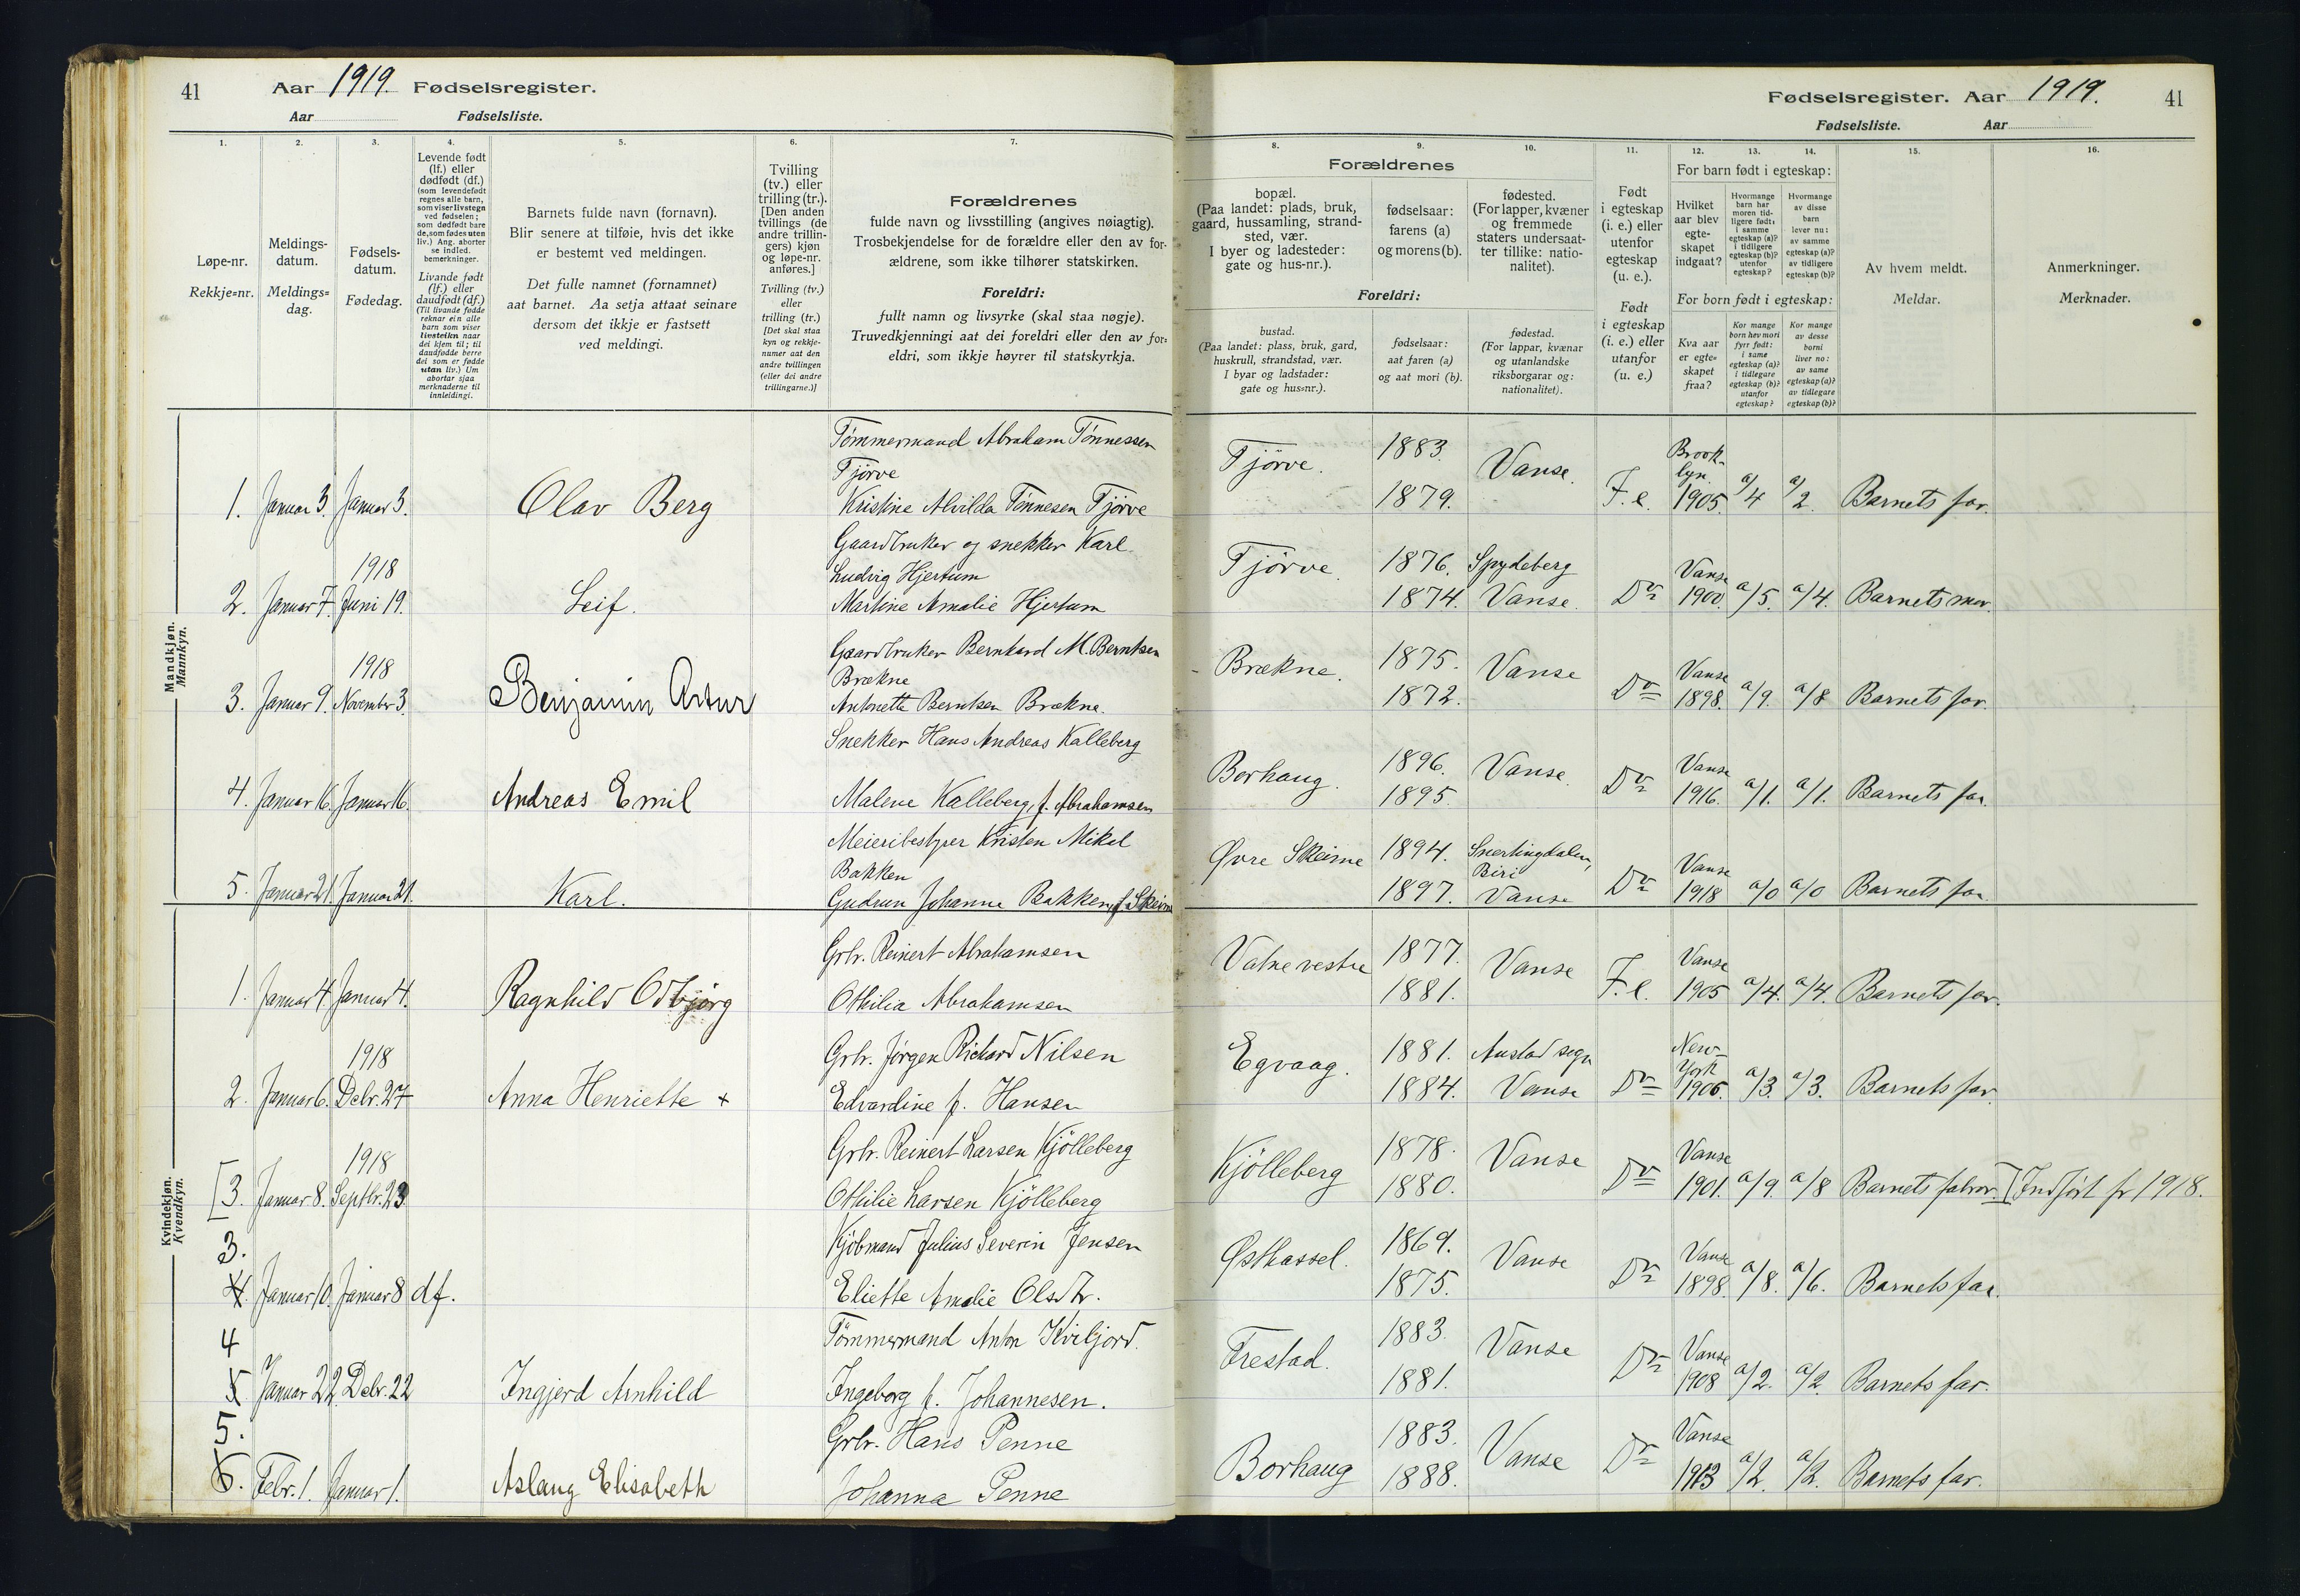 41
Aar 1919. Fødselsregister.
Aar
Fødselsliste.
1.
2.
3.
4.
5.
6.
7.
Løpe-nr.
Rekkje-nr.
Meldings-
datum.
Meldings-
dag.
Fødsels-
datum.
Fødedag.
Levende født
(lf.) eller
dødfødt (df.)
(som levendefødt
regnes alle barn,
som viser livstegn
ved fødselen;
som dødfødt bare
de, som fødes uten
liv.) Ang. aborter
se indled.
bemerkninger.
Livande født
(lf.) eller
daudfødt (df.)
(Til livande fødde
reknar ein alle
barn som viser
livsteikn naar
dei kjem til; til
daudfødde berre
dei som er fødde
utan liv.) Um
abortar sjaa
merknaderne til
innleidingi.
Barnets fulde navn (fornavn).
Blir senere at tilføie, hvis det ikke
er bestemt ved meldingen.
Det fulle namnet (fornamnet)
aat barnet. Aa setja attaat seinare
dersom det ikkje er fastsett
ved meldingi.
Tvilling
(tv.) eller
trilling (tr.).
[Den anden
tvillings (de
andre trillin-
gers) kjøn
og løpe-nr.
anføres.]
Tvilling (tv.)
eller
trilling (tr.)
[Det skal staa
kyn og rekkje-
numer aat den
andre tvillingen
(eller dei andre
trillingarne.)]
Forældrenes
fulde navn og livsstilling (angives nøiagtig).
Trosbekjendelse for de forældre eller den av for-
ældrene, som ikke tilhører statskirken.
Foreldri:
fullt namn og livsyrke (skal staa nøgje).
Truvedkjenningi aat dei foreldri eller den av for-
eldri, som ikkje høyrer til statskyrkja.
Fødselsregister. Aar 1919.
41
Fødselsliste.
Aar
8.
9.
10.
11.
12.
13.
14.
15.
16.
Forældrenes
bopæl.
(Paa landet: plads, bruk,
gaard, hussamling, strand-
sted, vær.
I byer og ladesteder:
gate og hus-nr.).
fødselsaar:
farens (a)
og morens (b).
fødested.
(For lapper, kvæner
og fremmede
staters undersaat-
ter tillike: natio-
nalitet).
Foreldri:
bustad.
(Paa landet: plass, bruk, gard,
huskrull, strandstad, vær.
I byar og ladstader:
gate og hus-nr.).
fødselsaar:
aat faren (a)
og aat mori (b).
fødestad.
(For lappar, kvænar
og utanlandske
riksborgarar og:
nationalitet).
Født
i egteskap
(i. e.) eller
utenfor
egteskap
(u. e.).
Født
i egteskap
(i. e.) eller
utanfor
(u. e.)
For barn født i egteskap:
Hvilket
aar blev
egte-
skapet
indgaat?
Hvormange
barn har
moren tid-
ligere født:
i samme
egteskap (a)?
i tidligere
egteskap (b)?
utenfor
egteskap?
Hvormange
av disse
barn
lever nu:
av samme
egteskap (a)?
av tidligere
egteskap (b)?
For born født i egteskap:
Kva aar
er egte-
skapet
fraa?
Kor mange
born hev mori
fyrr født:
i same
egteskap (a)?
i tidlegare
egteskap (b)?
utanfor
egteskap?
Kor mange
av desse
borni
liver no:
av same
egteskap (a)?
av tidlegare
egteskap (b)?
Av hvem meldt.
Meldar.
Anmerkninger.
Merknader.
Mandkjøn.
Mannkyn.
Tømmermand Abraham Tønnessen
Tjørve
1. Januar 3. Januar 3. Olav Berg Kristine Alvilda Tønnesen Tjørve
Tjørve. 1883. 1879. Vanse. F. e. Brook-
lyn
1905. a/4 a/2. Barnets far.
Gaardbruker og snekker Karl
Ludvig Hjertum
1918
2. Januar 7. Juni 19. Leif. Martine Amalie Hjertum
Tjørve. 1876. Spydeberg
1874. Vanse. Do Vanse
1900. a/5. a/4. Barnets mor.
Gaardbruker Bernhard M. Berntsen
Brækne
1918
3. Januar 9. November 3. Benjamin Artur Antonette Berntsen Brækne.
Brækne. 1875. 1872. Vanse Do Vanse
1898. a/9. a/8 Barnets far.
Snekker Hans Andreas Kalleberg
4. Januar 16. Januar 16. Andreas Emil Malene Kalleberg, f. Abrahamsen
Borhaug. 1896. 1895. Vanse. Do Vanse
1916. a/1. a/1. Barnets far.
Meieribestyrer Kristen Mikal
Bakken
5. Januar 21. Januar 21. Karl. Gudrun Johanne Bakken, f. Skeime
Øvre Skeime 1894. Snertingdalen,
Biri
1897. Vanse Do Vanse
1918 a/0 a/0 Barnets far.
Kvindekjøn.
Kvendkyn.
Grbr. Reinert Abrahamsen
1. Januar 4. Januar 4. Ragnhild Odbjørg Othilia Abrahamsen
Vatne vestre 1877. 1881. Vanse F. e. Vanse
1905 a/4. a/4. Barnets far.
Grbr. Jørgen Richard Nilsen
1918
2. Januar 6. Debr. 27 Anna Henriette x Edvardine f. Hansen
Egvaag. 1881. Austad sogn
1884. Vanse Do New-
York
1906. a/3. a/3. Barnets far.
Grbr. Reinert Larsen Kjølleberg
1918
[3. Januar 8. Septbr. 23 Othilie Larsen Kjølleberg
Kjølleberg 1878. 1880. Vanse Do Vanse
1901. a/9. a/8 Barnets farbror. [Indført fr 1918.
Kjøbmand Julius Severin Jensen
3.
4. Januar 10. Januar 8 df. Eliette Amalie Olsdtr.
Østhassel. 1869. 1875. Vanse Do Vanse
1898. a/8. a/6. Barnets far.
Tømmermand Anton Kviljord.
4
5. Januar 22. Debr. 22 Ingjerd Arnhild Ingeborg f. Johannesen.
Frestad. 1883. 1881. Vanse Do Vanse
1908 a/2. a/2. Barnets far.
Grbr. Hans Penne
5.
6. Febr. 1. Januar 1. Aslaug Elisabeth Johanna Penne
Borhaug 1883. 1888. Vanse Do Vanse
1913 a/2. a/2. Barnets far.